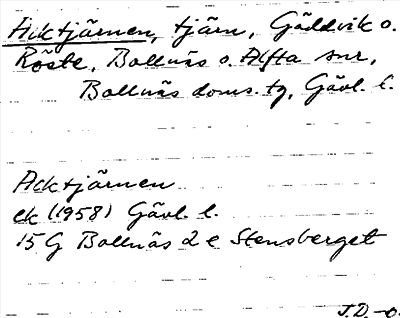 Acktjärnen, tjärn, Gäddvik o.
Röste, Bollnäs o. Alfta snr,
Bollnäs doms. tg, Gävl. l.
Acktjärnen
ek (1958) Gävl. l.
15 G Bollnäs 2 e Stensberget
J.D.-o.